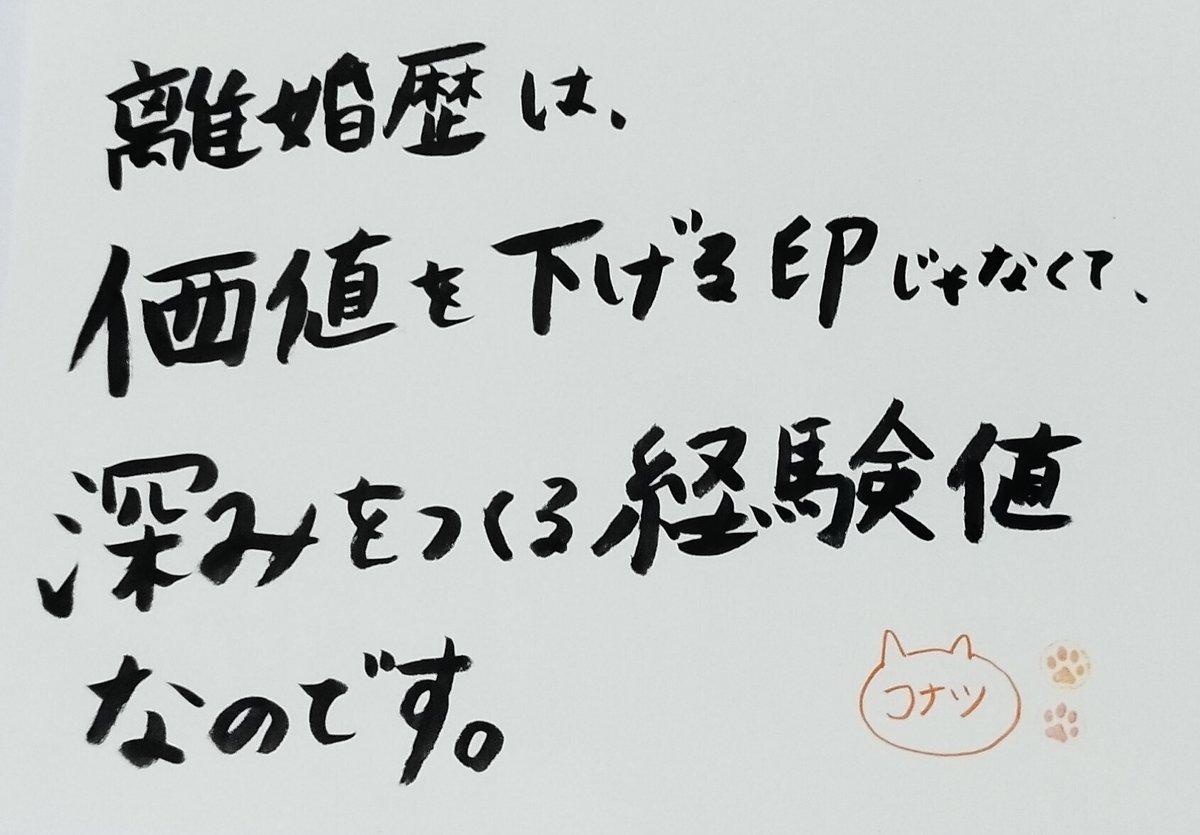 離婚歴は、
価値を下げる印じゃなくて、
深みをつくる経験値
なのです。
コナツ